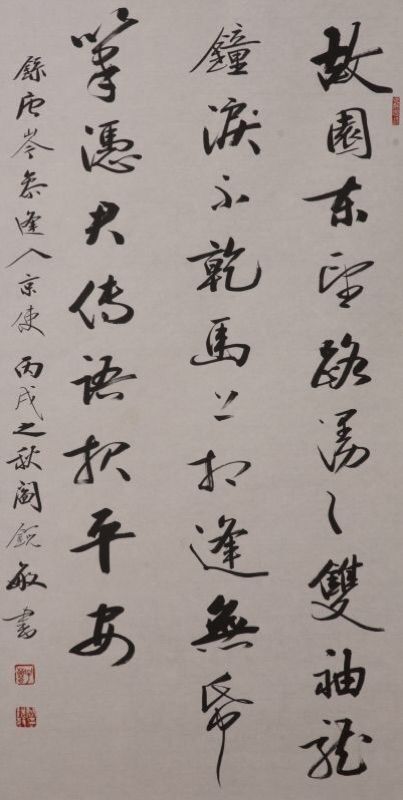 故園東望路漫々雙袖龍
鐘淚不乾馬上相逢無紙
筆憑君傳語报平安
錄唐岑参逢入京使 丙戌之秋 閻銳敏書